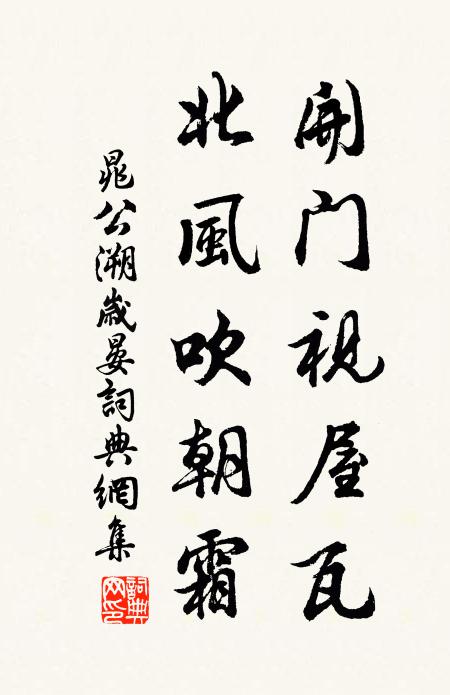 開门視屋瓦
北風吹朝霜
晁公溯歳晏詞典網集
詞典网印